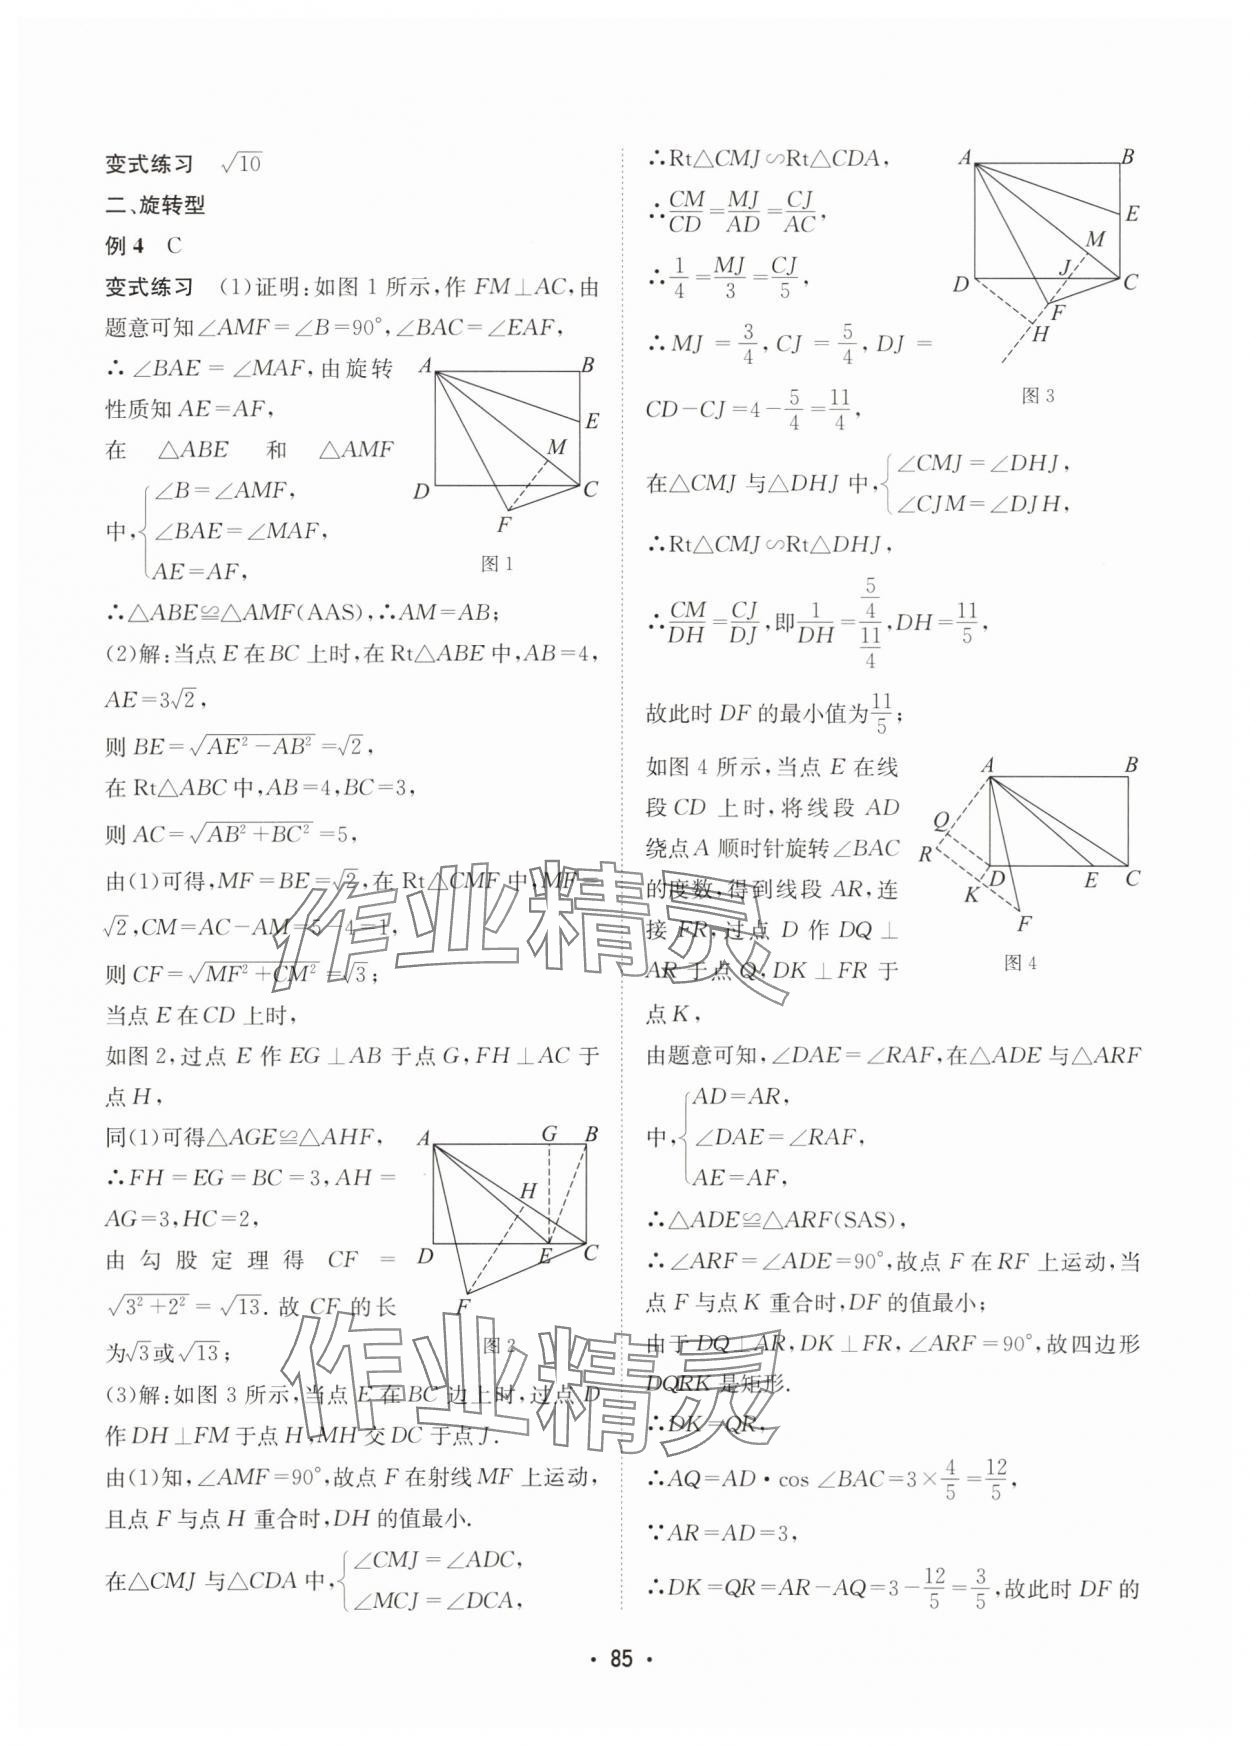 变式练习 √10
二、旋转型
例4 C
变式练习 (1)证明:如图1所示,作FM⊥AC,由
题意可知∠AMF=∠B=90°,∠BAC=∠EAF,
∴∠BAE=∠MAF,由旋转
性质知AE=AF,
在△ABE和△AMF
中,{∠B=∠AMF,
∠BAE=∠MAF,
AE=AF,
A B E M D C F
图1
∴△ABE≌△AMF(AAS),∴AM=AB;
(2)解:当点E在BC上时,在Rt△ABE中,AB=4,
AE=3√2,
则BE=√(AE²-AB²)=√2,
在Rt△ABC中,AB=4,BC=3,
则AC=√(AB²+BC²)=5,
由(1)可得,MF=BE=√2,在Rt△CMF中,MF=
√2,CM=AC-AM=5-4=1,
则CF=√(MF²+CM²)=√3;
当点E在CD上时,
如图2,过点E作EG⊥AB于点G,FH⊥AC于
点H,
同(1)可得△AGE≌△AHF,
∴FH=EG=BC=3,AH=
AG=3,HC=2,
由勾股定理得CF=
√(3²+2²)=√13.故CF的长
为√3或√13;
A G B H D E C F
图2
(3)解:如图3所示,当点E在BC边上时,过点D
作DH⊥FM于点H,MH交DC于点J.
由(1)知,∠AMF=90°,故点F在射线MF上运动,
且点F与点H重合时,DH的值最小.
在△CMJ与△CDA中,{∠CMJ=∠ADC,
∠MCJ=∠DCA,
∴Rt△CMJ∽Rt△CDA,
∴CM/CD=MJ/AD=CJ/AC,
∴1/4=MJ/3=CJ/5,
∴MJ=3/4,CJ=5/4,DJ=
CD-CJ=4-5/4=11/4,
A B E M J D C F H
图3
在△CMJ与△DHJ中,{∠CMJ=∠DHJ,
∠CJM=∠DJH,
∴Rt△CMJ∽Rt△DHJ,
∴CM/DH=CJ/DJ,即1/DH=(5/4)/(11/4),DH=11/5,
故此时DF的最小值为11/5;
如图4所示,当点E在线
段CD上时,将线段AD
绕点A顺时针旋转∠BAC
的度数,得到线段AR,连
接FR,过点D作DQ⊥
AR于点Q,DK⊥FR于
点K,
A B Q R D E C K F
图4
由题意可知,∠DAE=∠RAF,在△ADE与△ARF
中,{AD=AR,
∠DAE=∠RAF,
AE=AF,
∴△ADE≌△ARF(SAS),
∴∠ARF=∠ADE=90°,故点F在RF上运动,当
点F与点K重合时,DF的值最小;
由于DQ⊥AR,DK⊥FR,∠ARF=90°,故四边形
DQRK是矩形.
∴DK=QR,
∴AQ=AD·cos∠BAC=3×4/5=12/5,
∵AR=AD=3,
∴DK=QR=AR-AQ=3-12/5=3/5,故此时DF的
作业精灵
作业精灵
·85·